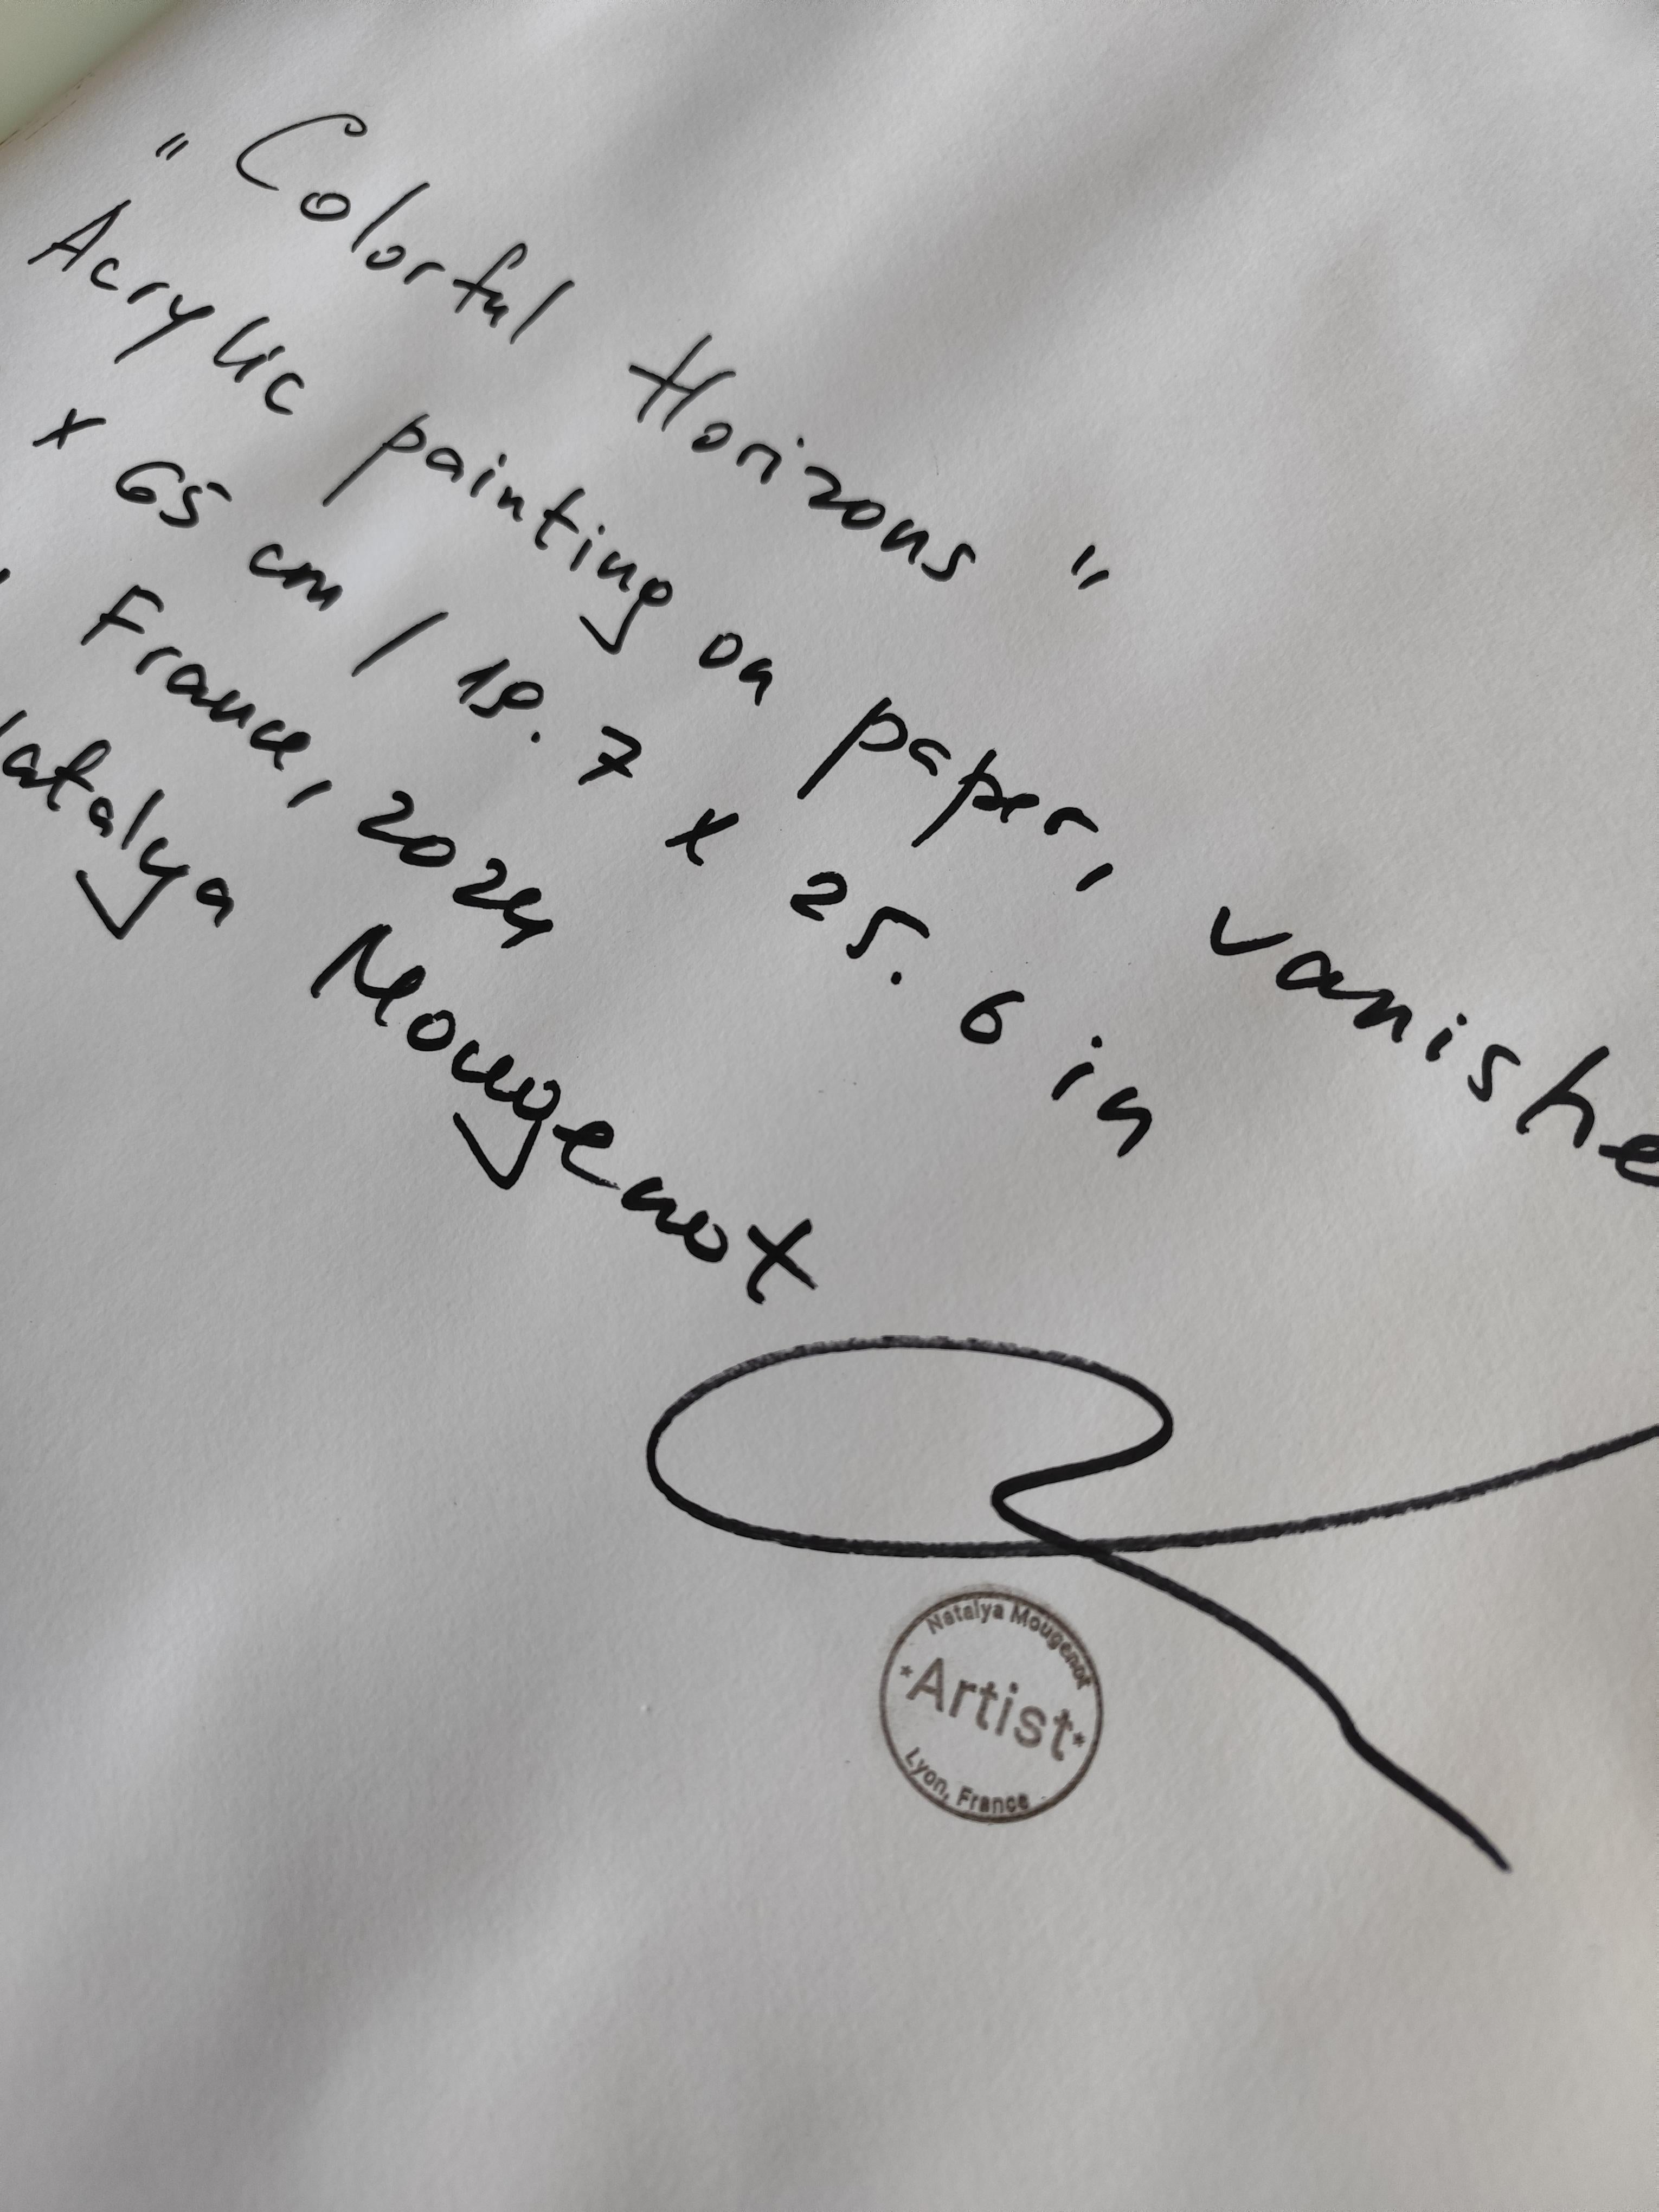 "Colorful Horizons"
Acrylic painting on paper, vanishe
x 65 cm / 19.7 x 25.6 in
France, 2024
atalya Mougenot
Natalya Mougenot
*Artist*
Lyon, France